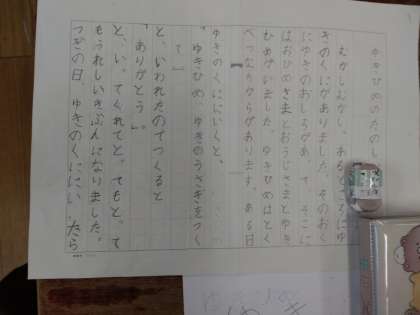 ゆきひめのたのし
むかしむかし、あるところにゆ
きのくにがありました。そのおく
にゆきのおしろがあって、そこに
はおひめさまとおうじさまとゆき
ひめがいました。ゆきひめはとく
べつなちからがあります。ある日
ゆきのくににいくと、
「ゆきひめ、ゆきのうさぎをつく
って」
と、いわれたのでつくると
「ありがとう」。
と、いってくれてと、てもと、て
もうれしいきぶんになりました。
つぎの日、ゆきのくににい、たら